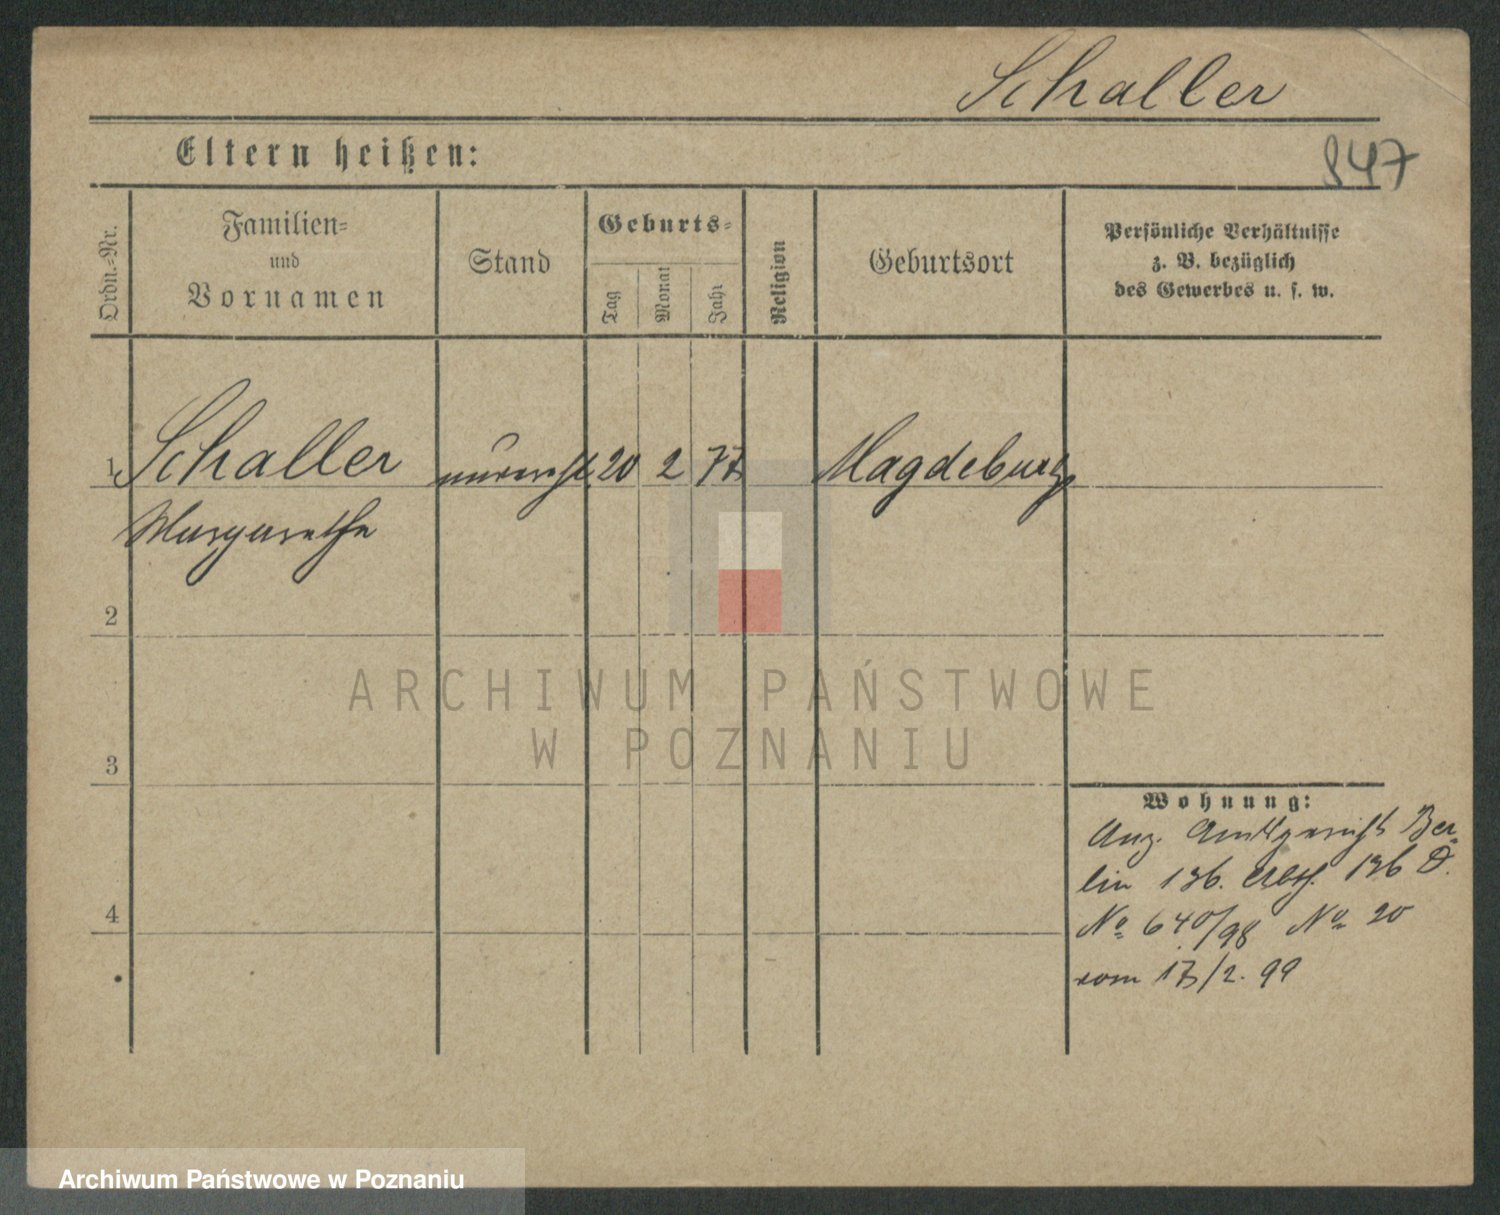 Schaller
947
Eltern heißen:
Ordn.-Nr.
Familien-
und
Vornamen
Stand
Geburts-
Tag
Monat
Jahr
Religion
Geburtsort
Persönliche Verhältnisse
z. B. bezüglich
des Gewerbes u. s. w.
1 Schaller unverehl. 20 2 77 Magdeburg
Margarethe
2
3
4
Wohnung:
Anz. Amtsgericht Ber-
lin 136. Abth. 136 D.
No 640/98 No 20
vom 17/2. 99
ARCHIWUM PAŃSTWOWE
W POZNANIU
Archiwum Państwowe w Poznaniu